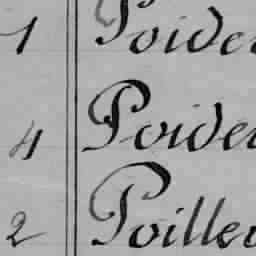 1 Poider
4 Poider
2 Poilleu